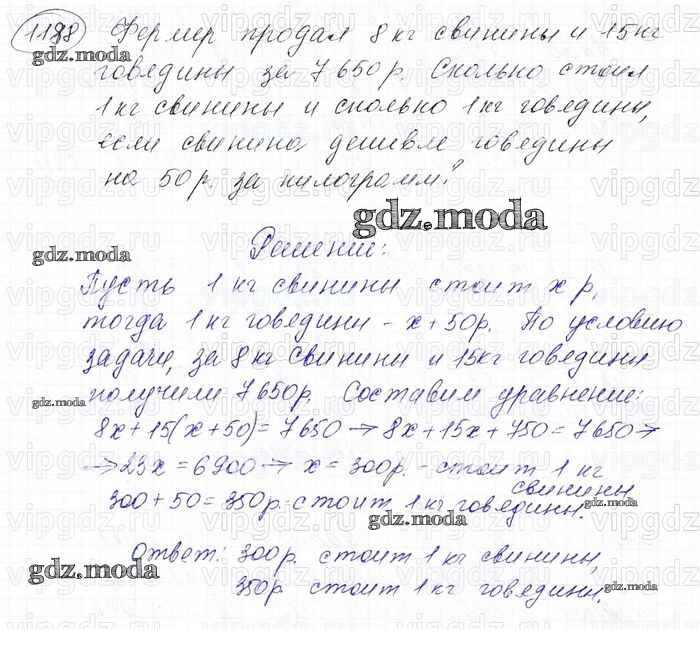 1188 Фермер продал 8 кг свинины и 15 кг
говядины за 7650 р. Сколько стоил
1 кг свинины и сколько 1 кг говядины,
если свинина дешевле говядины
на 50 р. за килограмм?
gdz.moda
Решение:
Пусть 1 кг свинины стоит x р,
тогда 1 кг говядины - x+50 р. По условию
задачи, за 8 кг свинины и 15 кг говядины
получили 7650 р. Составим уравнение:
8x+15(x+50)=7650 → 8x+15x+750=7650 →
→ 23x=6900 → x=300 р. - стоит 1 кг
свинины
300+50=350 р. - стоит 1 кг говядины.
Ответ: 300 р. стоит 1 кг свинины,
350 р стоит 1 кг говядины.